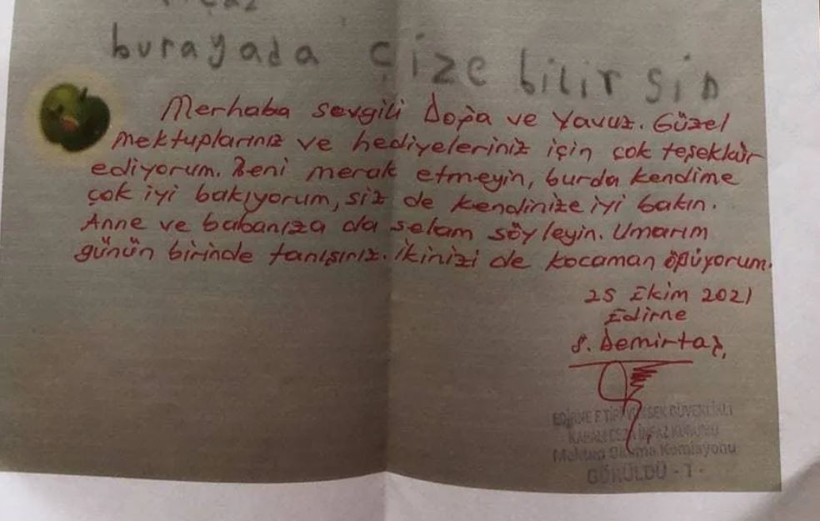 burayada çize bilirsin
Merhaba sevgili Doğa ve Yavuz. Güzel
mektuplarınız ve hediyeleriniz için çok teşekkür
ediyorum. Beni merak etmeyin, burda kendime
çok iyi bakıyorum, siz de kendinize iyi bakın.
Anne ve babanıza da selam söyleyin. Umarım
günün birinde tanışırız. İkinizi de kocaman öpüyorum.
25 Ekim 2021
Edirne
S. Demirtaş,
EDİRNE F TİPİ YÜKSEK GÜVENLİKLİ
KAPALI CEZA İNFAZ KURUMU
Mektup Okuma Komisyonu
GÖRÜLDÜ - 1 -